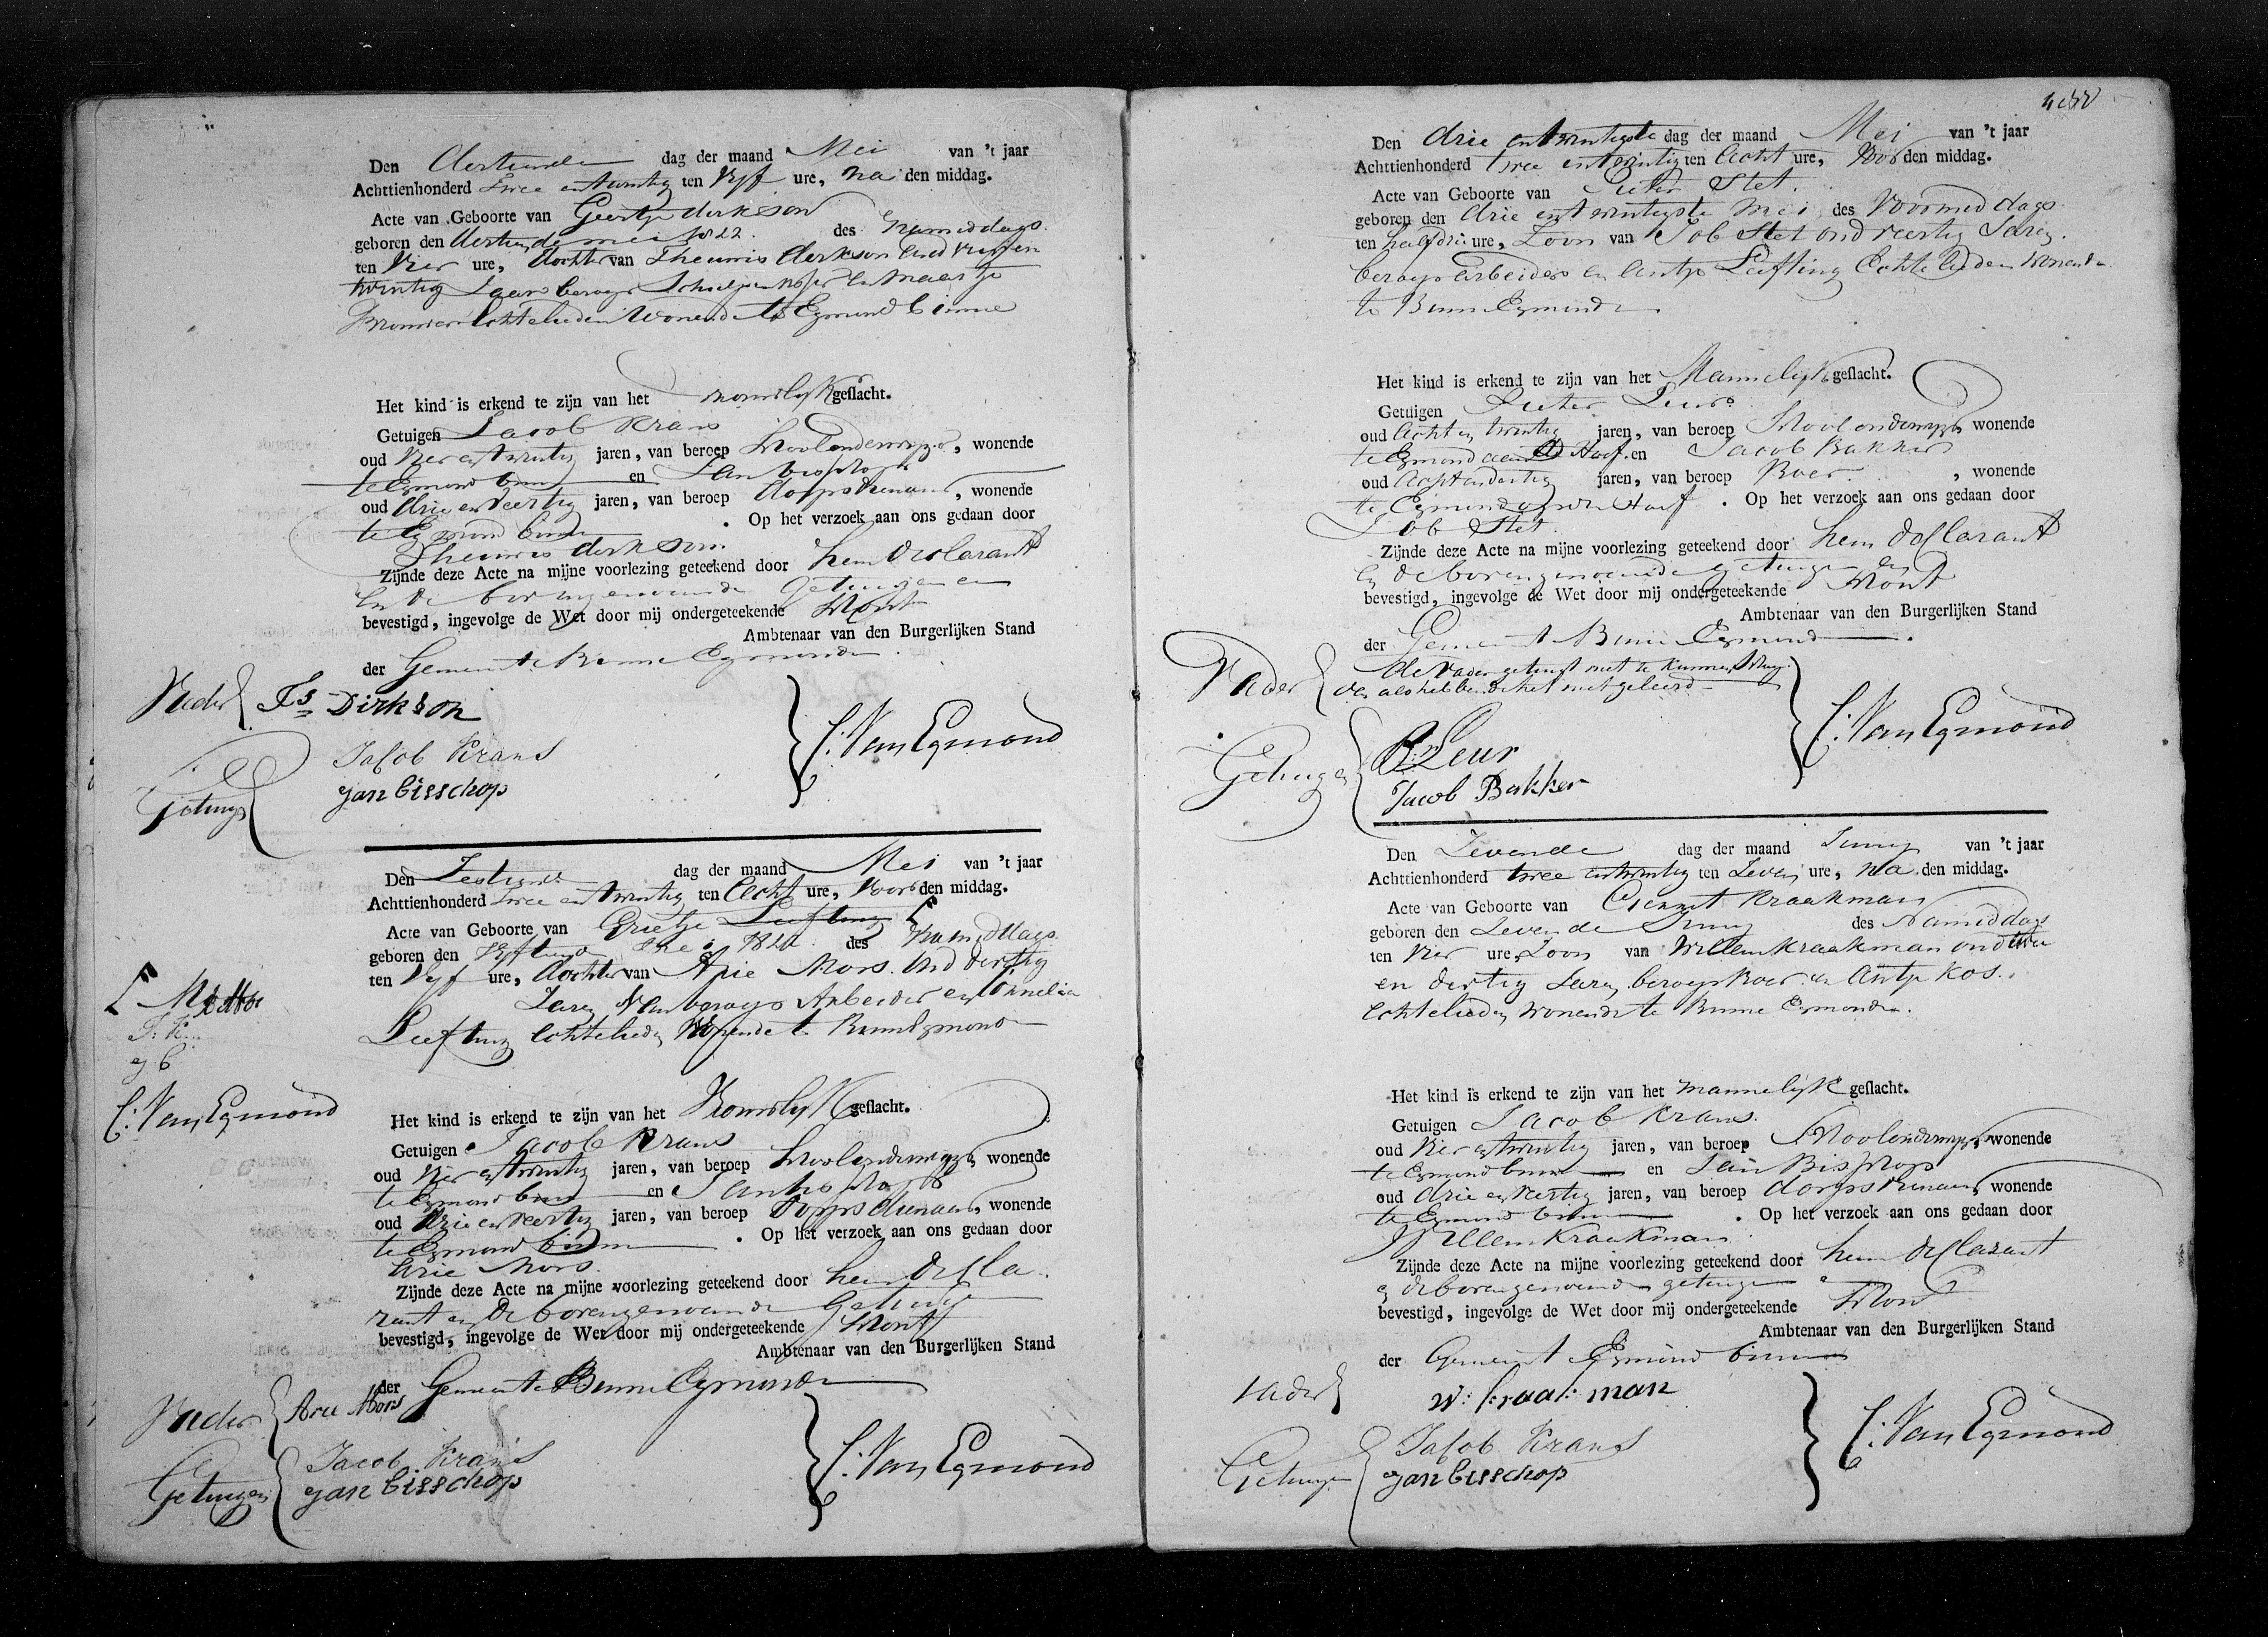 Den Dertiende dag der maand Mei van 't jaar
Achttienhonderd twee en twintig ten Vyf ure, na den middag.
Acte van Geboorte van Geertje derkson
geboren den dertiende mei 1822. des namiddags
ten Vier ure, dochter van Theunis derkson oud
twintig Jaar beroep en Maartje
Echtelieden Wonende te Egmond binne
Het kind is erkend te zijn van het vrouwlyk geslacht.
Getuigen Jacob Krans
oud Vier en twintig jaren, van beroep Schoolonderwyzer, wonende
te Egmond binne en Jan bisschop
oud drie en Veertig jaren, van beroep dorpsdienaar, wonende
te Egmond binne . Op het verzoek aan ons gedaan door
Theunis derkson
Zijnde deze Acte na mijne voorlezing geteekend door hem declarant
en de bovengenoemde Getuigen en
bevestigd, ingevolge de Wet door mij ondergeteekende Schout
Ambtenaar van den Burgerlijken Stand
der Gemeente Binne Egmond
Vader Ts Dirkson
Jacob Krans C: Van Egmond
Getuigen Jan bisschop
Den Zestiende dag der maand Mei van 't jaar
Achttienhonderd twee en twintig ten Acht ure, Voor den middag.
Acte van Geboorte van Grietje Leefting
geboren den Vyftiende Mei 1822 des Namiddags
ten Vyf ure, dochter van Arie Mors Oud dertig
Jaren Van beroep Arbeider en Cornelia
Leefting Echtelieden Wonende te Binne Egmond
Mors
J: K:
J b
C: Van Egmond
Het kind is erkend te zijn van het Vrouwlyk geslacht.
Getuigen Jacob Krans
oud Vier en twintig jaren, van beroep Schoolonderwyzer, wonende
te Egmond binne en Jan bisschop
oud drie en Veertig jaren, van beroep dorps dienaar, wonende
te Egmond binne . Op het verzoek aan ons gedaan door
Arie Mors
Zijnde deze Acte na mijne voorlezing geteekend door hem decla
rant en de bovengenoemde Getuige
bevestigd, ingevolge de Wet door mij ondergeteekende Schout
Ambtenaar van den Burgerlijken Stand
der Gemeente Binne Egmond
Vader Arie Mors
Jacob Krans C: Van Egmond
Getuigen Jan bisschop
Den drie en twintigste dag der maand Mei van 't jaar
Achttienhonderd twee en twintig ten Acht ure, Voor den middag.
Acte van Geboorte van Pieter Stet.
geboren den drie en twintigste Mei des Voormiddags
ten half drie ure, Zoon van Job Stet oud veertig Jaren
beroep arbeider en Antje Leefting Echtelieden Wonende
te Binne Egmond
Het kind is erkend te zijn van het Mannelyk geslacht.
Getuigen Pieter Leur
oud Acht en twintig jaren, van beroep Schoolonderwyzer, wonende
te Egmond aan de Hoef en Jacob Bakker
oud Acht en dertig jaren, van beroep Boer , wonende
te Egmond aan de Hoef . Op het verzoek aan ons gedaan door
Job Stet
Zijnde deze Acte na mijne voorlezing geteekend door hem declarant
en de bovengenoemde getuige en
bevestigd, ingevolge de Wet door mij ondergeteekende Schout
Ambtenaar van den Burgerlijken Stand
der Gemeente Binne Egmond
Vader de Vader getuigt niet te kunnen Schry
ven als hebbende het niet geleerd
P: Leur C: Van Egmond
Getuigen Jacob Bakker
Den Zevende dag der maand Juny van 't jaar
Achttienhonderd twee en twintig ten Zeven ure, na den middag.
Acte van Geboorte van Gerrit Kraakman
geboren den Zevende Juny des Namiddags
ten Vier ure, Zoon van Willem Kraakman oud twee
en dertig Jaren beroep Boer en Antje Kos.
Echtelieden Wonende te Binne Egmond.
Het kind is erkend te zijn van het mannelyk geslacht.
Getuigen Jacob Krans.
oud Vier en twintig jaren, van beroep Schoolonderwyzer, wonende
te Egmond binne en Jan Bisschop
oud drie en Veertig jaren, van beroep dorps dienaar, wonende
te Egmond binne . Op het verzoek aan ons gedaan door
Willem Kraakman
Zijnde deze Acte na mijne voorlezing geteekend door hem declarant
en de bovengenoemde getuige
bevestigd, ingevolge de Wet door mij ondergeteekende Schout
Ambtenaar van den Burgerlijken Stand
der Gemeente Egmond binne
Vader W: kraakman
Jacob Krans C: Van Egmond
Getuigen Jan bisschop